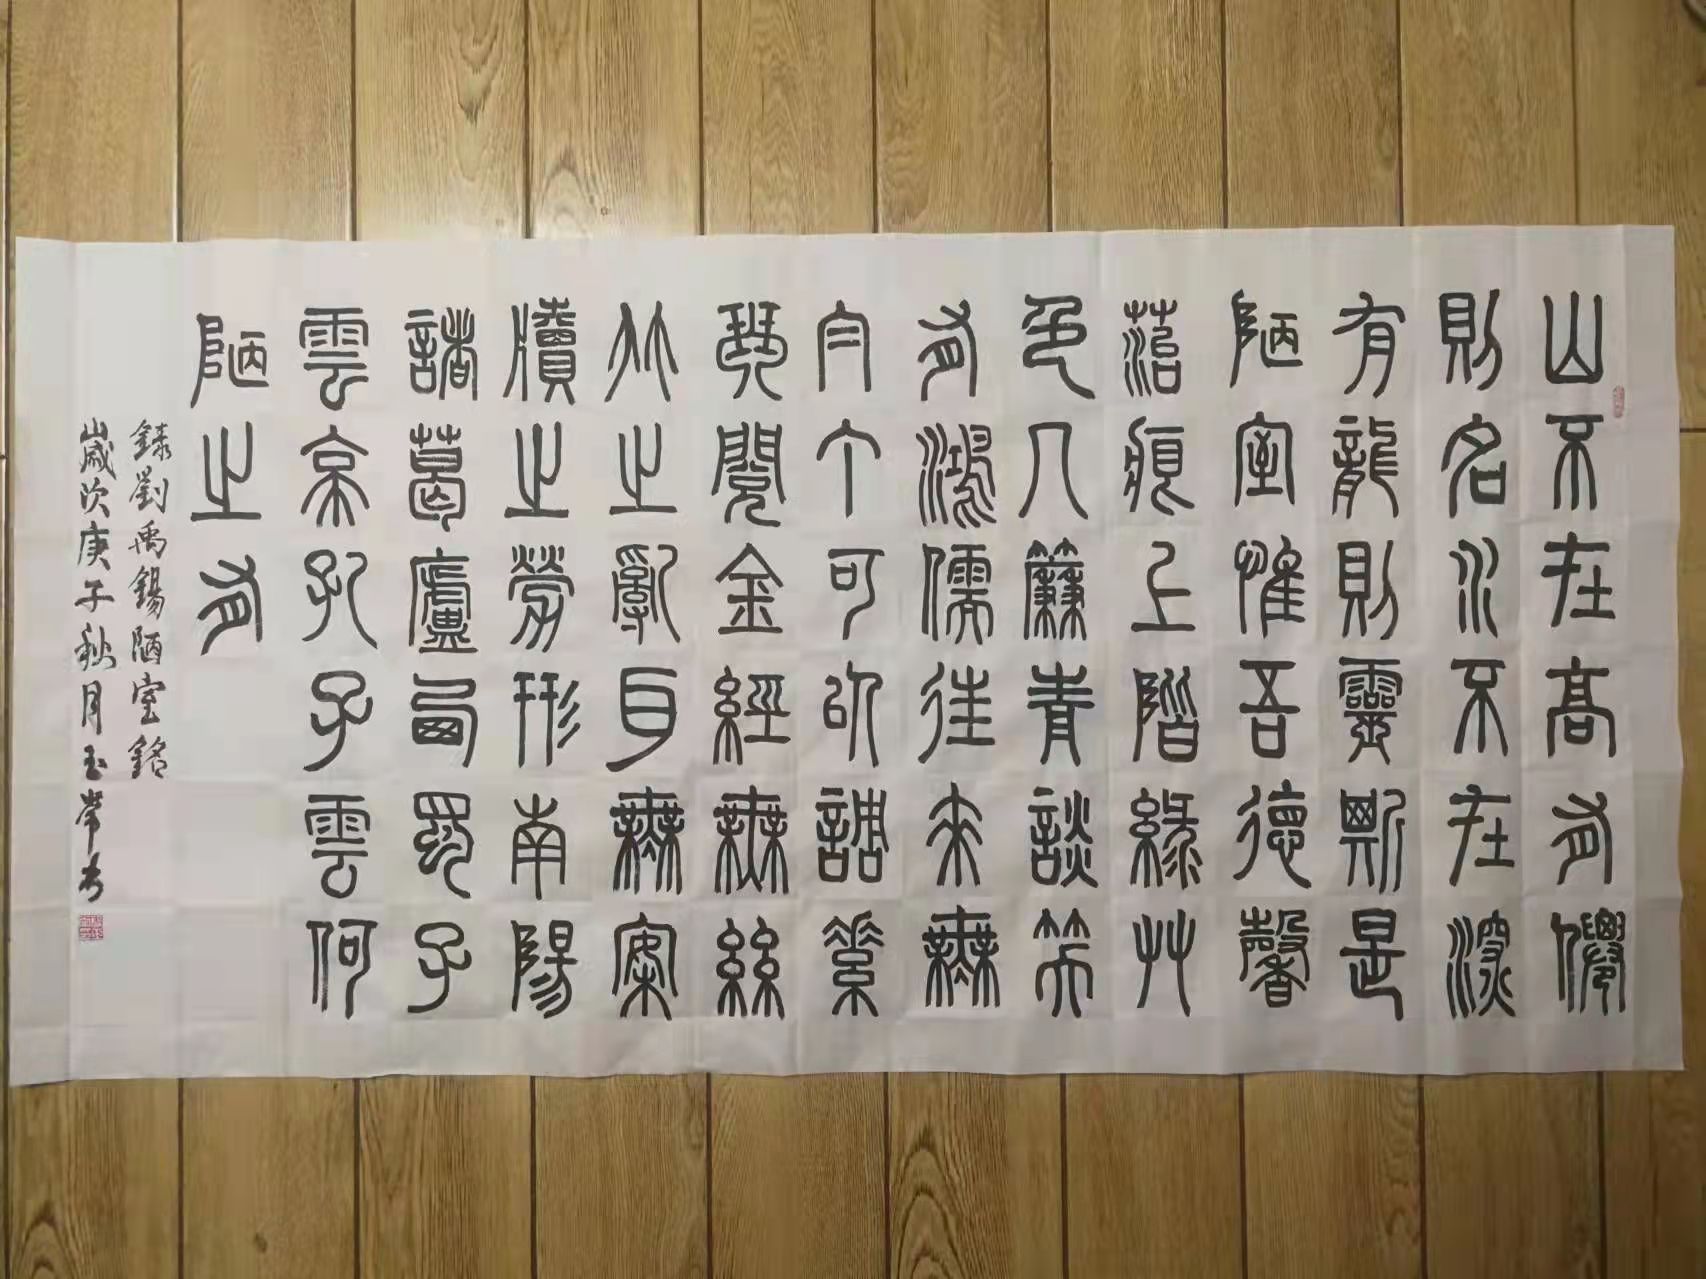 山不在高有僊
則名水不在深
有龍則靈斯是
陋室惟吾德馨
菭痕上階綠艸
色入簾青談笑
有鴻儒往來無
白丁可以調素
琴閱金經無絲
竹之亂耳無案
牘之勞形南陽
諸葛廬西蜀子
雲亭孔子雲何
陋之有
錄劉禹錫陋室銘
歲次庚子秋月玉常书